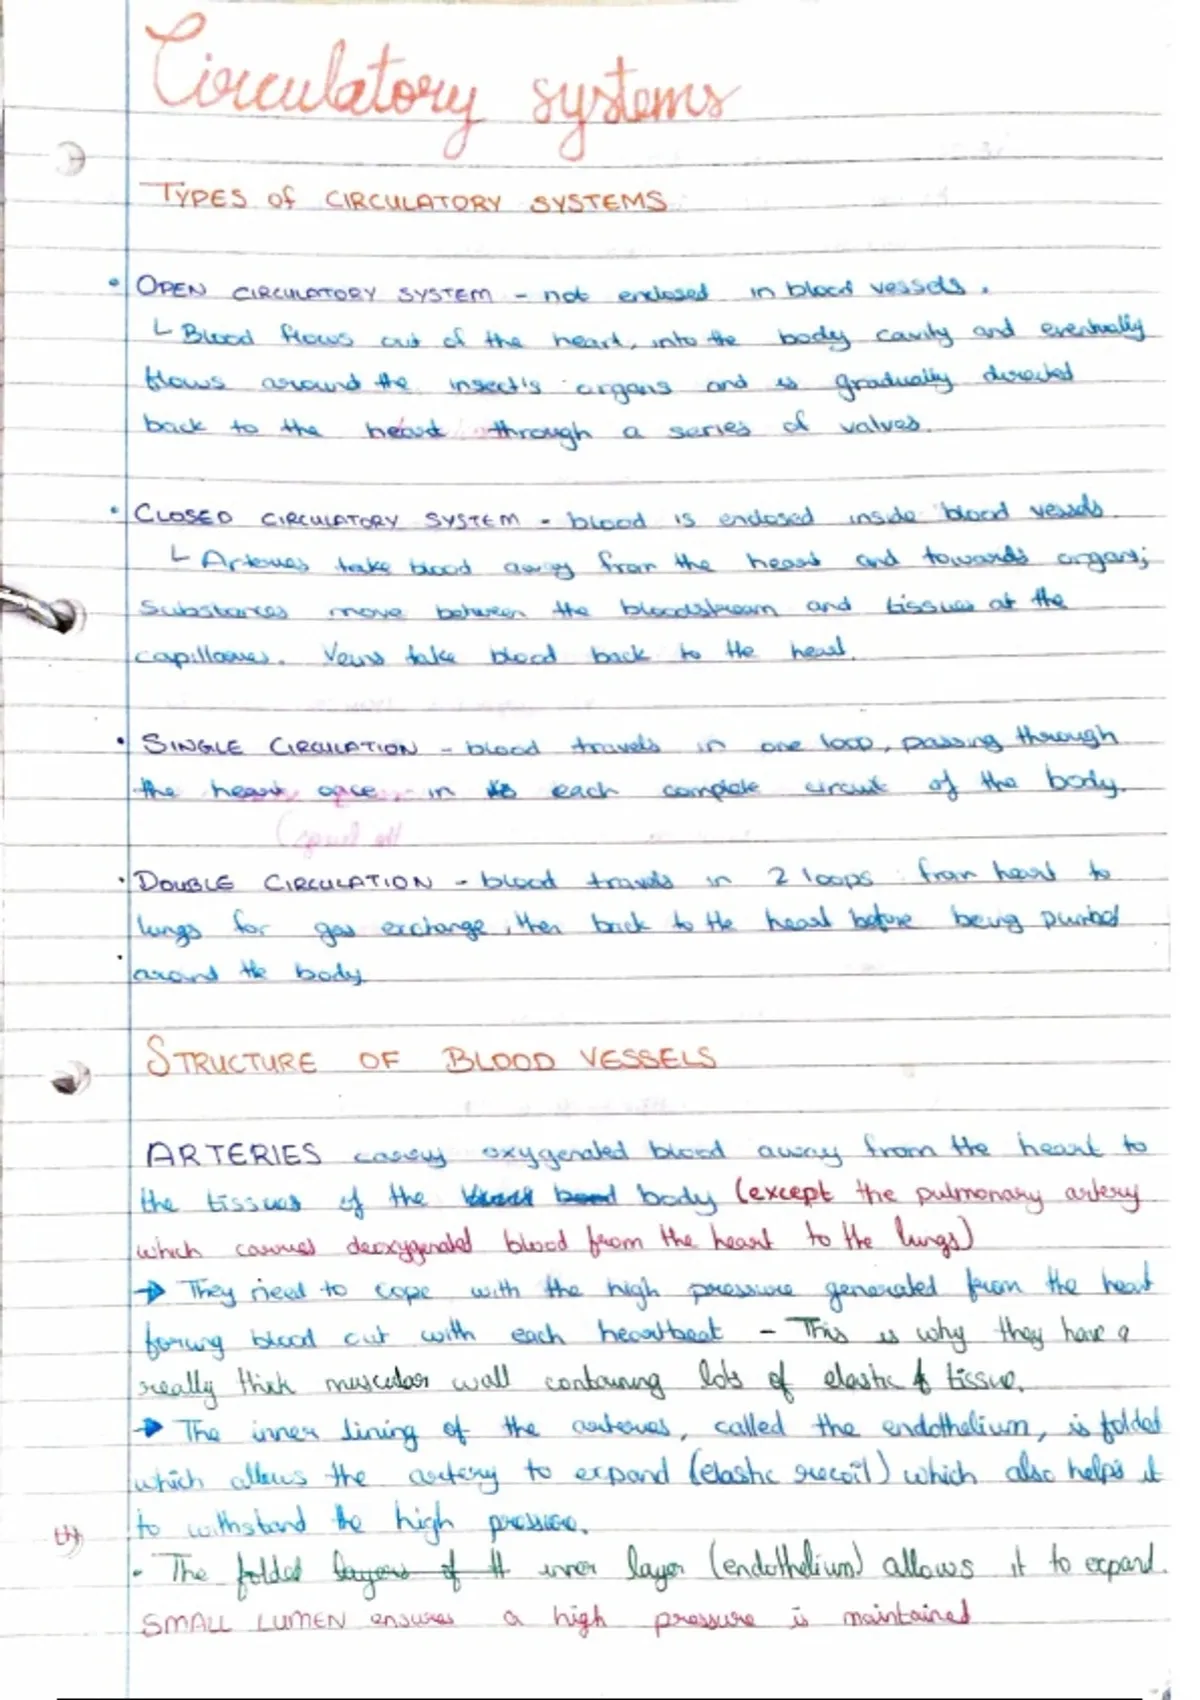 Circulatory systems
TYPES of CIRCULATORY SYSTEMS
• OPEN CIRCULATORY SYSTEM - not enclosed in blood vessels.
Blood flows out of the heart, into the body cavity and eventually
flows around the insect's organs and is gradually directed
back to the heart through a series of valves.
• CLOSED CIRCULATORY SYSTEM - blood is enclosed inside blood vessels.
Arteries take blood away from the heart and towards organs;
substances move between the bloodstream and tissues at the
capillaries. Veins take blood back to the heart.
• SINGLE CIRCULATION - blood travels in one loop, passing through
the heart once, in each complete circuit of the body.
• DOUBLE CIRCULATION - blood travels in 2 loops: from heart to
lungs for gas exchange, then back to the heart before being pumped
around the body.
STRUCTURE OF BLOOD VESSELS
ARTERIES carry oxygenated blood away from the heart to
the tissues of the body (except the pulmonary artery
which carries deoxygenated blood from the heart to the lungs)
→ They need to cope with the high pressure generated from the heart
forcing blood out with each heartbeat - This is why they have a
really thick muscular wall containing lots of elastic tissue.
→ The inner lining of the arteries, called the endothelium, is folded
which allows the artery to expand (elastic recoil) which also helps it
to withstand the high pressure.
- The folded layers of inner layer (endothelium) allows it to expand.
SMALL LUMEN ensures a high pressure is maintained